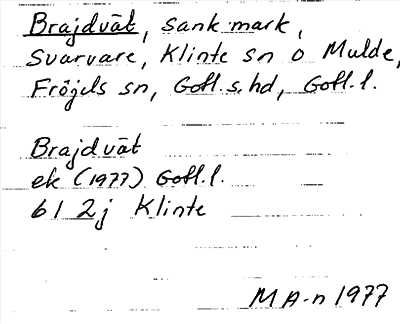 Brajdvät, sank mark,
Svarvare, Klinte sn o Mulde,
Fröjels sn, Gotl. s. hd, Gotl. l.
Brajdvät
ek (1977) Gotl. l.
61 2j Klinte
MA-n 1977